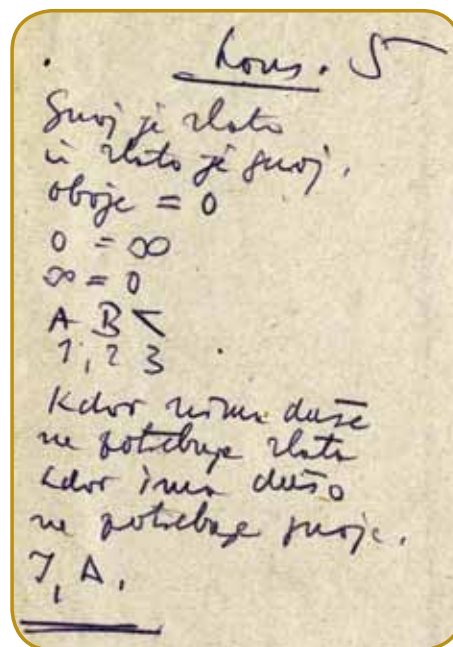 kons. 5
Gnoj je zlato
in zlato je gnoj.
oboje = 0
0 = ∞
∞ = 0
A B <
1, 2 3
Kdor nima duše
ne potrebuje zlata
kdor ima dušo
ne potrebuje gnoja.
I, A.